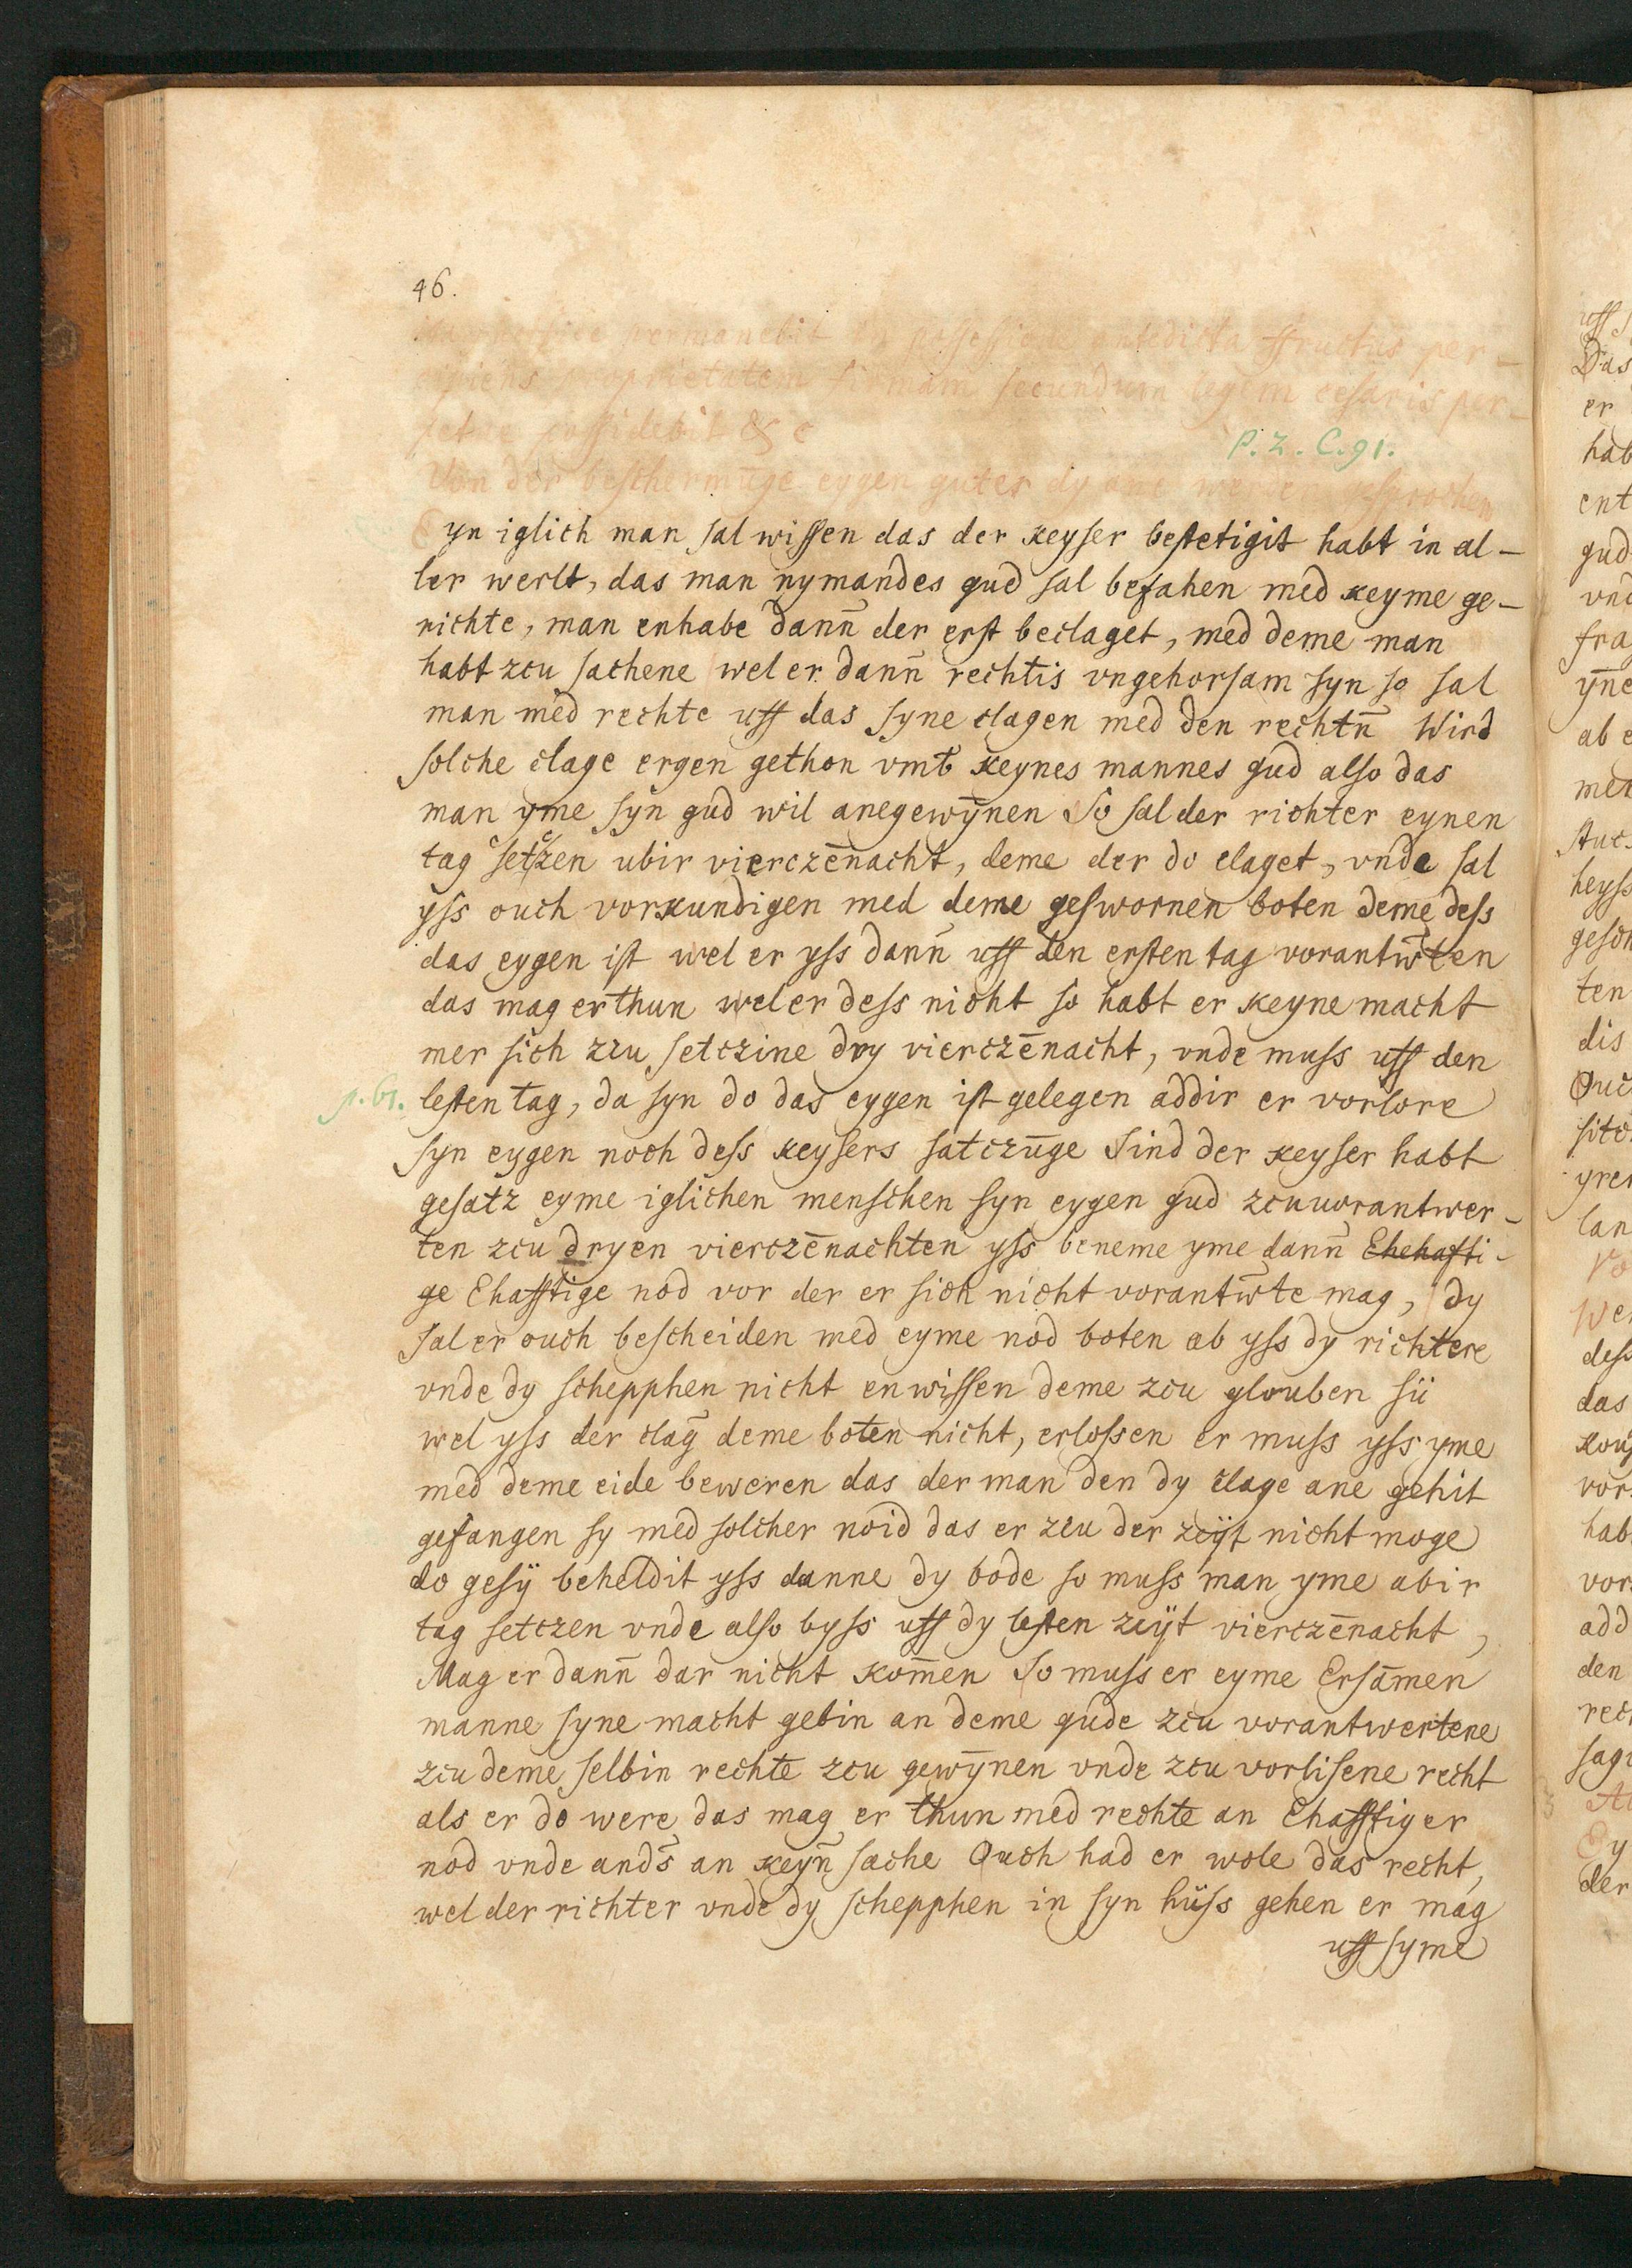 46.
permanebit in possessione antedicta ffructus per-
cipiens proprietatem secundum legem cesaris per-
petue possidebit & c
P. 2. C. 91.
Von der beschermuge eygen guter dy ane werden gesprochen
Eyn iglich man sal wissen das der keyser bestetigit habt in al-
ler werlt, das man nymandes gud sal befahen med keyme ge-
richte, man enhabe dann̄ der erst beclaget, med deme man
habt zcu sachene wel er dann̄ rechtis vngehorsam syn so sal
man med rechte uff das syne clagen med den rechtn̄ Wird
solche clage ergen gethon vmb keynes mannes gud also das
man yme syn gud wil anegewȳnen So sal der richter eynen
tag setczen ubir vierczēnacht, deme der do claget, vnde sal
yss ouch vorkundigen med deme geswornen boten deme dess
das eygen ist wel er yss dann̄ uff den ersten tag vorantw̄ten
das mag er thun wel er dess nicht so habt er keyne macht
mer sich zcu setczine dry vierczēnacht, vnde muss uff den
p. 61. lesten tag, da syn do das eygen ist gelegen addir er vorlore
syn eygen noch dess keysers satczūge Sind der keyser habt
gesatz eyme iglichen menschen syn eygen gud zcuuorantwer-
ten zcu dryen vierczēnachten yss beneme yme dann̄ Ehehafti-
ge Ehafftige nod vor der er sich nicht vorantw̄te mag, dy
sal er ouch bescheiden med eyme nod boten ab yss dy richtere
vnde dy schepphen nicht enwissen deme zcu glouben sü
wel yss der claḡ deme boten nicht, erlossen er muss yss yme
med deme eide beweren das der man den dy clage ane gehit
gefangen sy med solcher noid das er zcu der zcÿt nicht moge
do gesÿ beheldit yss danne dy bode so muss man yme abir
tag setczen vnde also byss uff dy lesten zcÿt vierczēnacht,
Mag er dann̄ dar nicht kom̄en So muss er eyme Ersāmen
manne syne macht gebin an deme gude zcu vorantwertene
zcu deme selbin rechte zcu gewȳnen vnde zcu vorlisene recht
als er do were das mag er thun med rechte an Ehafftiger
nod vnde ands̄ an keyn̄ sache Ouch had er wole das recht,
wel der richter vnde dy schepphen in syn hüss gehen er mag
uff syme